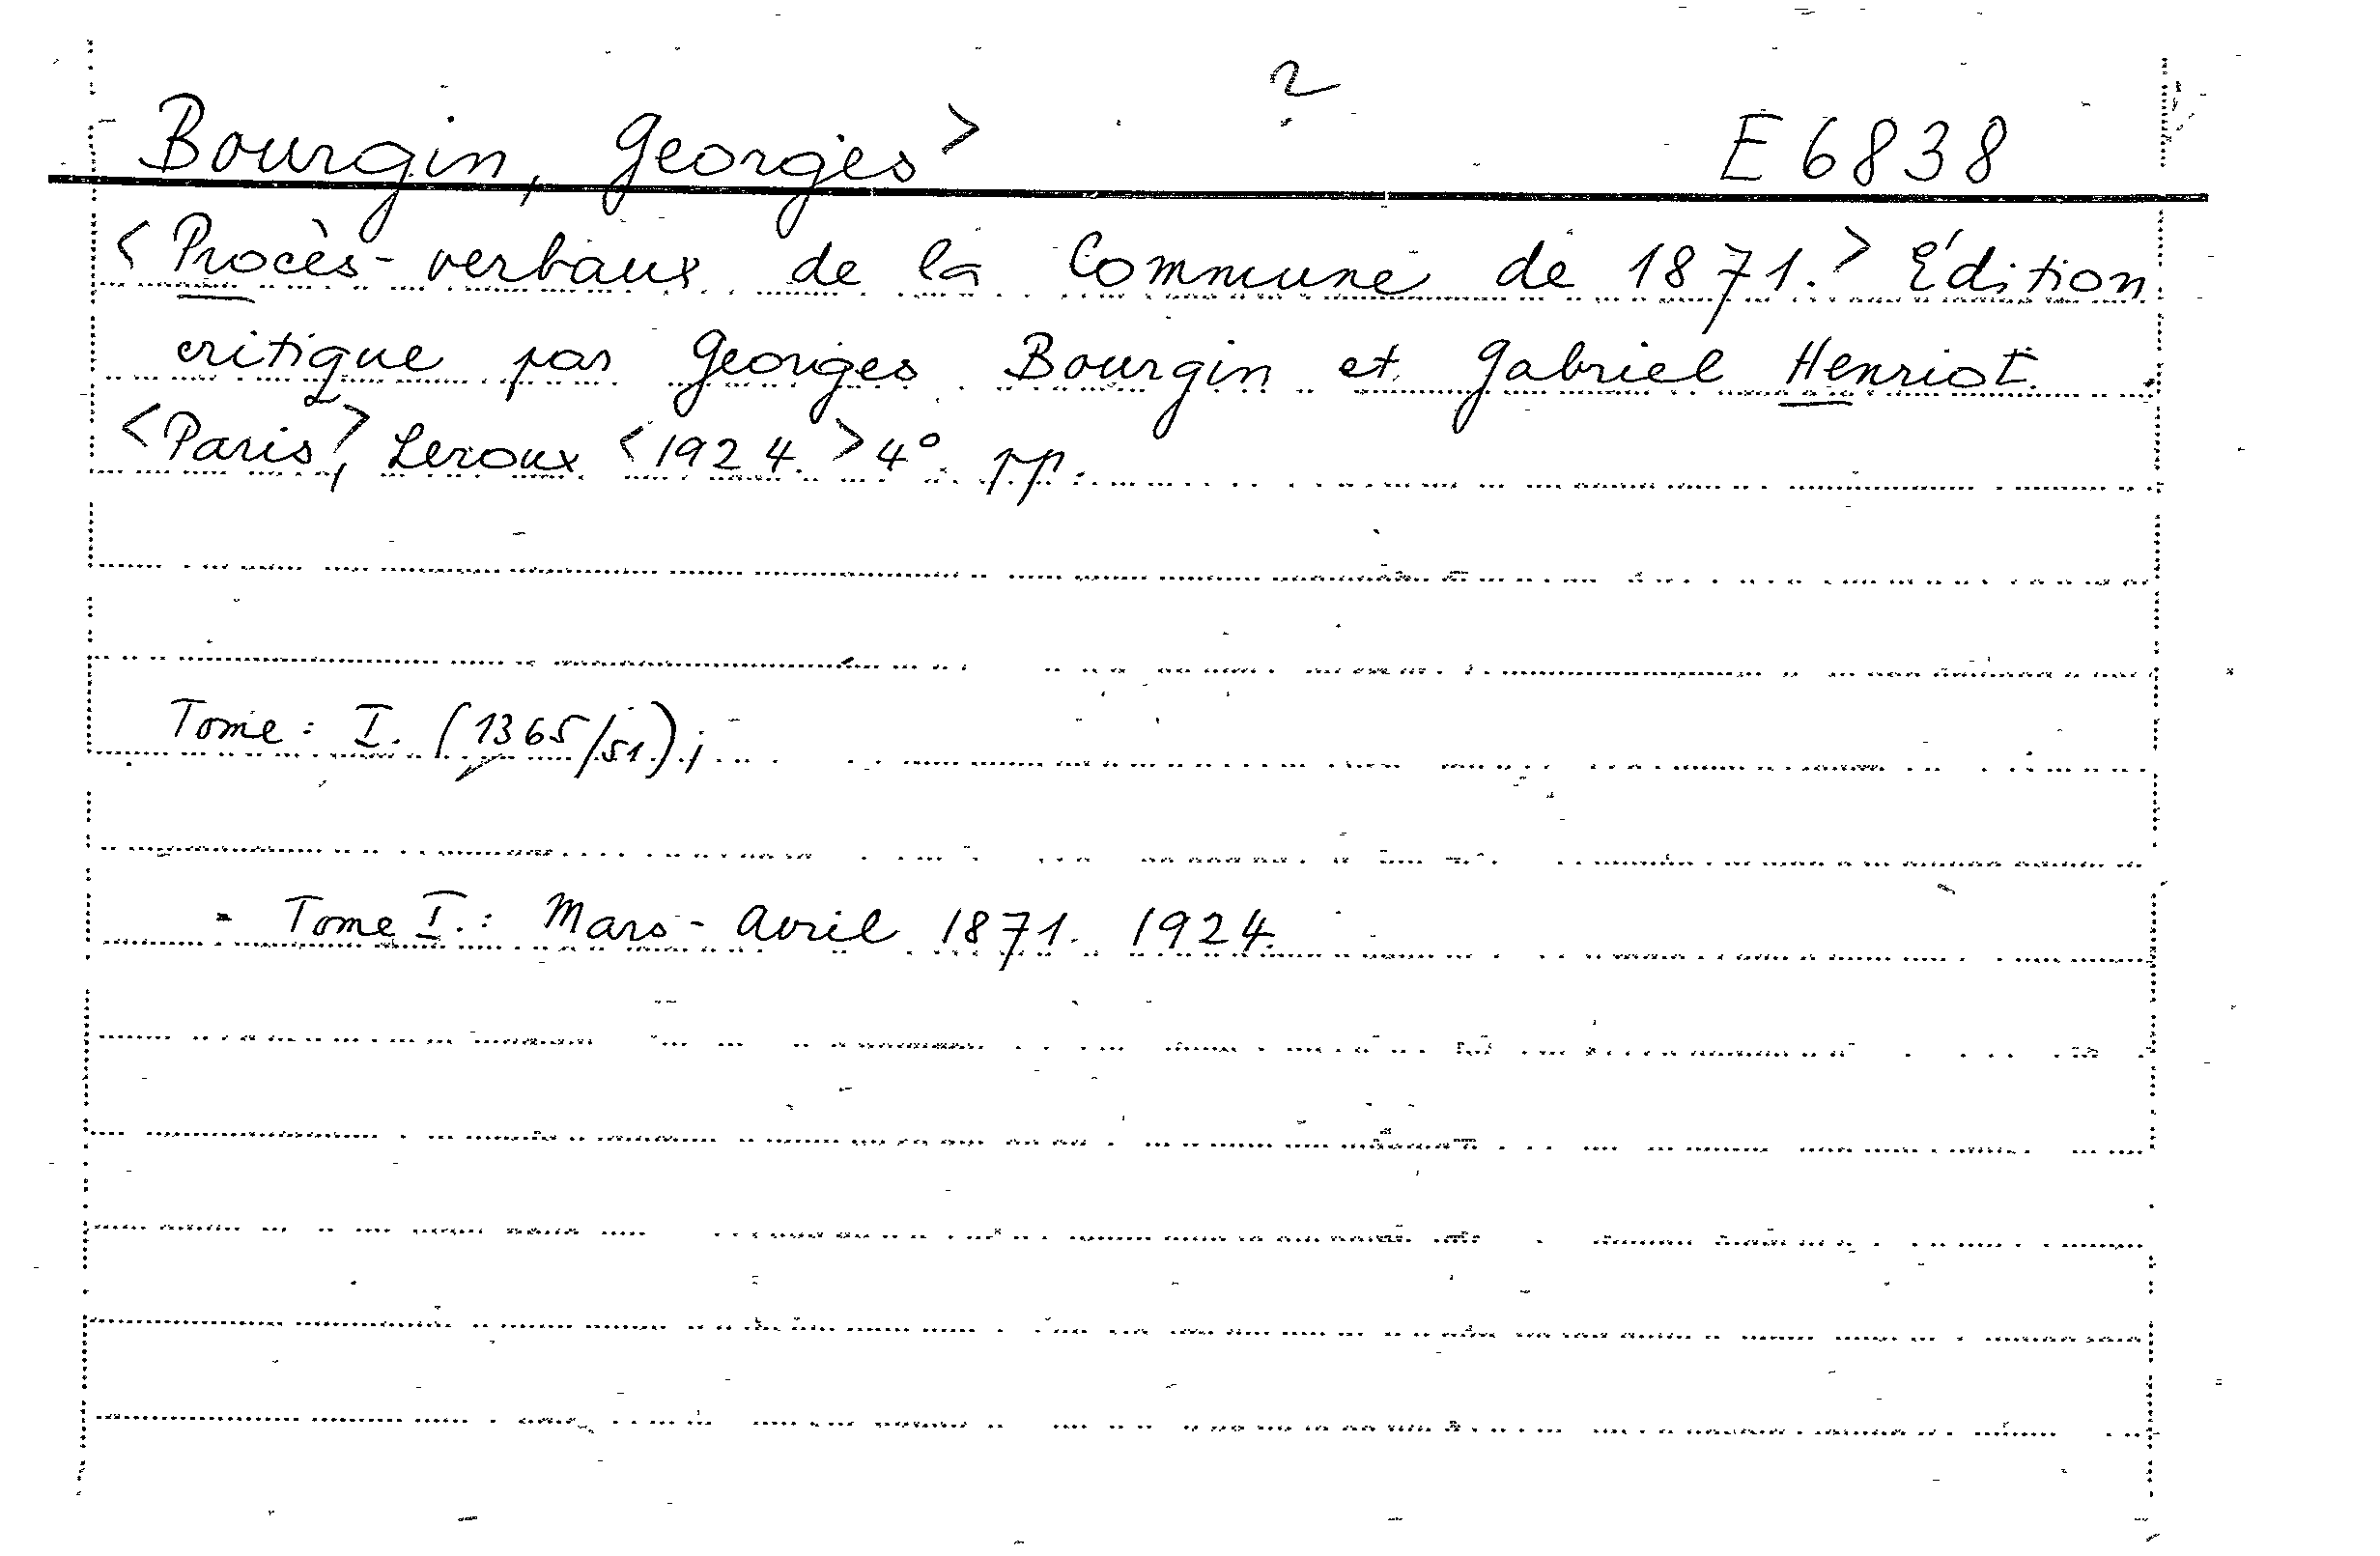 2
Bourgin, Georges> E6838
<Procès-verbaux de la Commune de 1871.> Édition
critique par Georges Bourgin et Gabriel Henriot.
<Paris>, Leroux <1924.> 4°. pp.
Tome: I. (1365/51);
- Tome I.: Mars-Avril 1871. 1924.